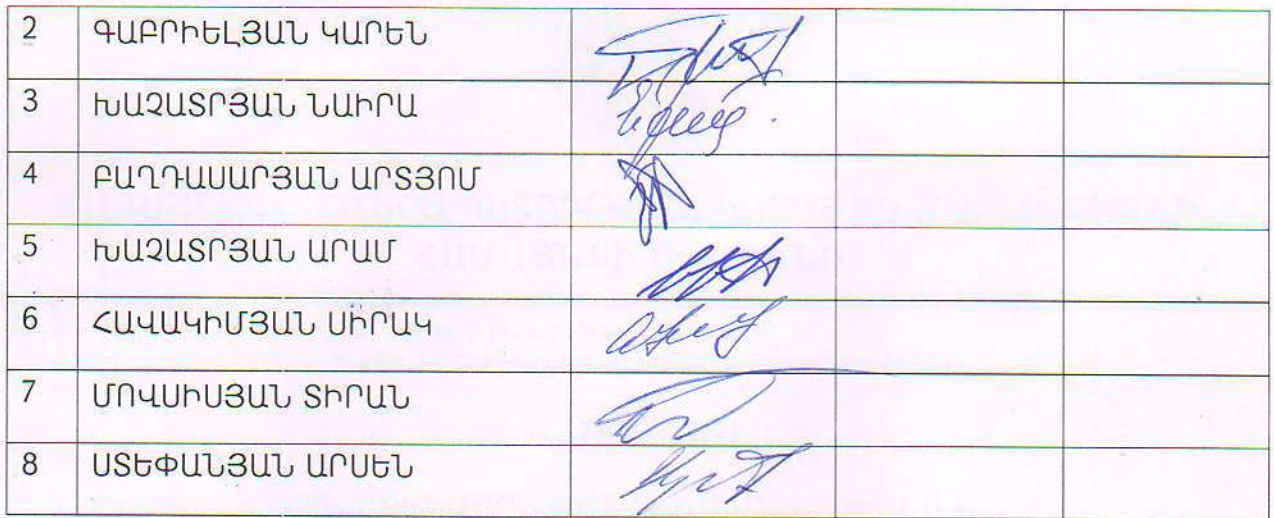 2 ԳԱԲՐԻԵԼՅԱՆ ԿԱՐԵՆ
3 ԽԱՉԱՏՐՅԱՆ ՆԱԻՐԱ
4 ԲԱՂԴԱՍԱՐՅԱՆ ԱՐՏՅՈՄ
5 ԽԱՉԱՏՐՅԱՆ ԱՐԱՄ
6 ՀԱՎԱԿԻՄՅԱՆ ՍԻՐԱԿ
7 ՄՈՎՍԻՍՅԱՆ ՏԻՐԱՆ
8 ՍՏԵՓԱՆՅԱՆ ԱՐՍԵՆ